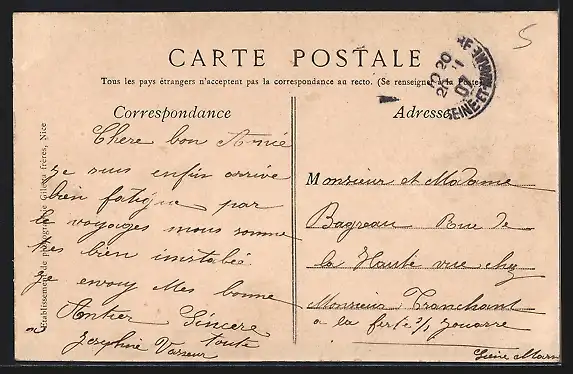 5
CARTE POSTALE
Tous les pays étrangers n'acceptent pas la correspondance au recto. (Se renseigner à la Poste)
Correspondance
Adresse
Chere bon Amié
je suis enfin arrivé
bien fatigué par
le voyages nous somme
tres bien instalée
je envoy Mes bonne
Antier Sincere
toute
Josephine Vasseur
Monsieur et Madame
Bagreau Rue de
la Haute vue chez
Monsieur Tranchant
a la ferte s/s Jouarre
Seine Marn
Etablissement de photographie Giletta frères, Nice
20
07
SEINE-ET-MARNE